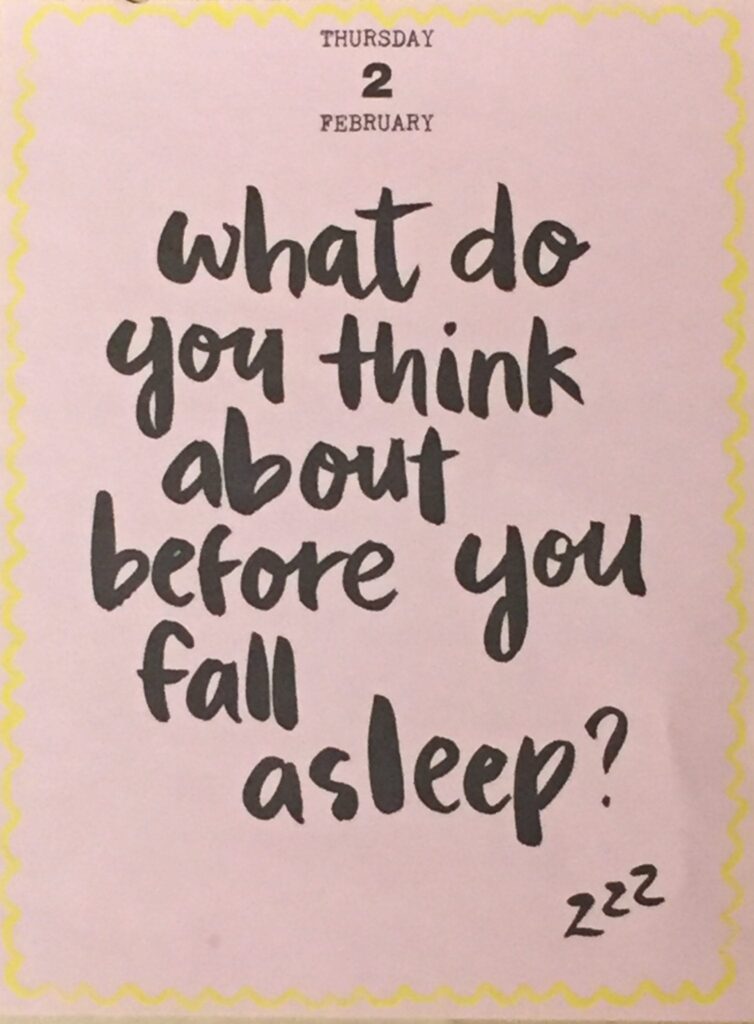 THURSDAY
2
FEBRUARY
what do
you think
about
before you
fall
asleep?
zzz